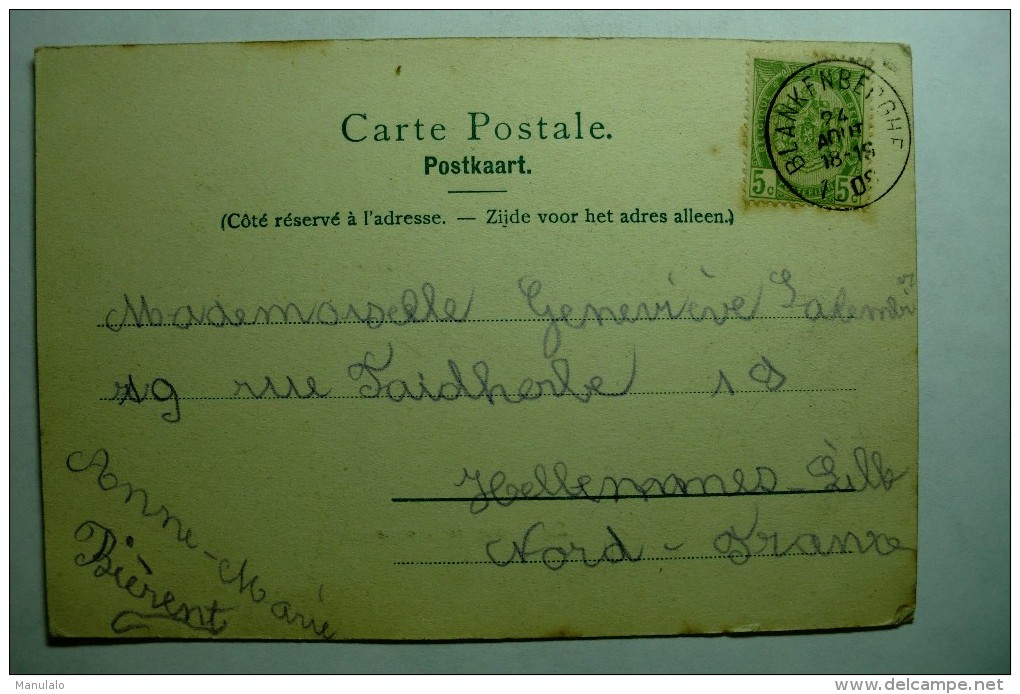 Carte Postale.
Postkaart.
(Côté réservé à l'adresse. — Zijde voor het adres alleen.)
BLANKENBERGHE
24
AOUT
18-19
5c 5c
Mademoiselle Geneviève
19 rue Faidherbe 18
Hellemmes-Lille
Nord - France
Anne-Marie
Bièrent
Manulalo
www.delcampe.net